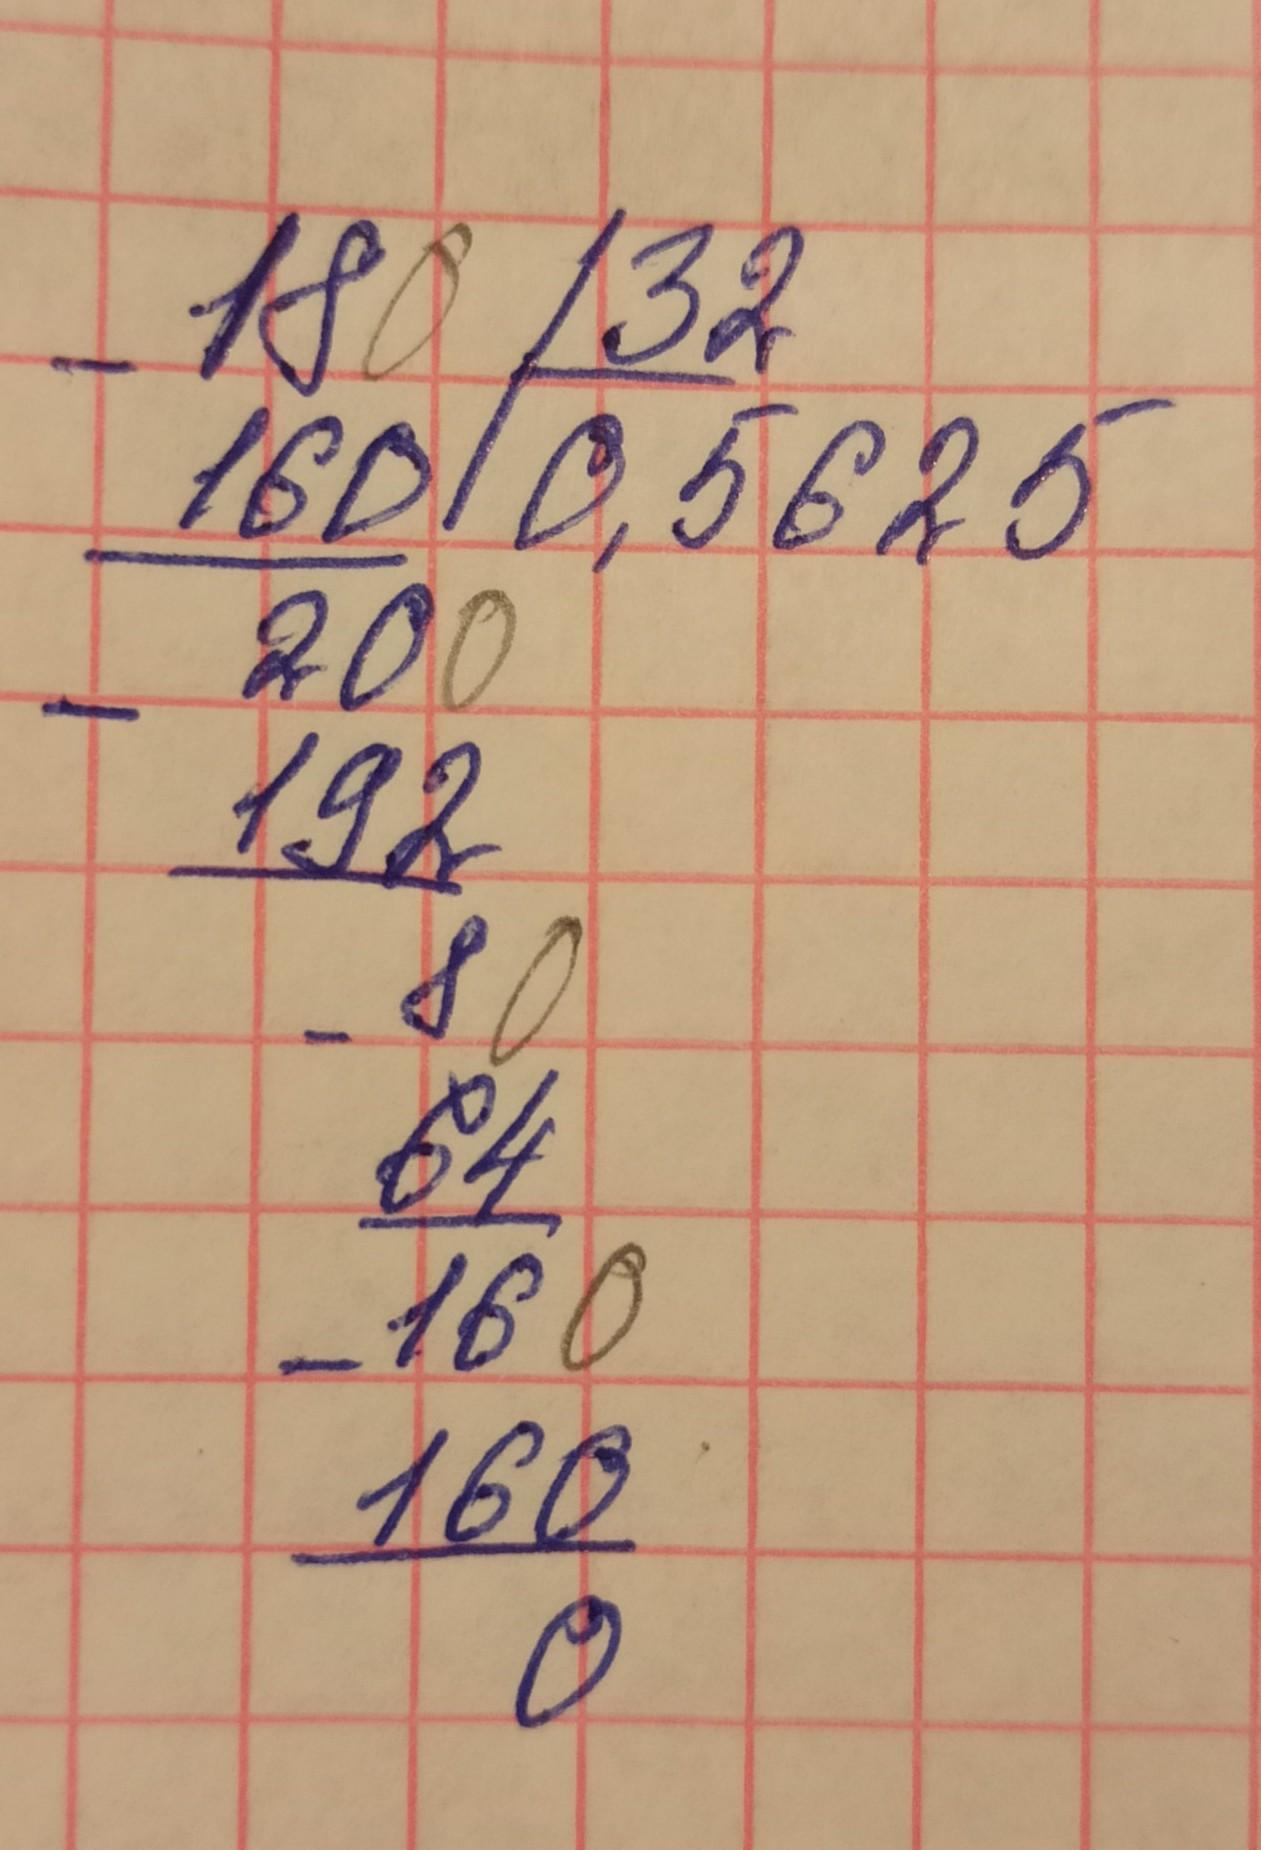 - 180 | 32
160 | 0,5625
- 200
192
- 80
64
- 160
160
0